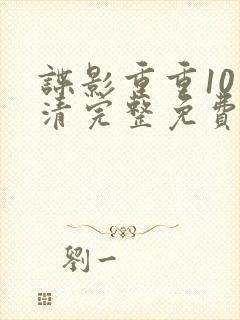 諜影重重10
清完整免費
劉一